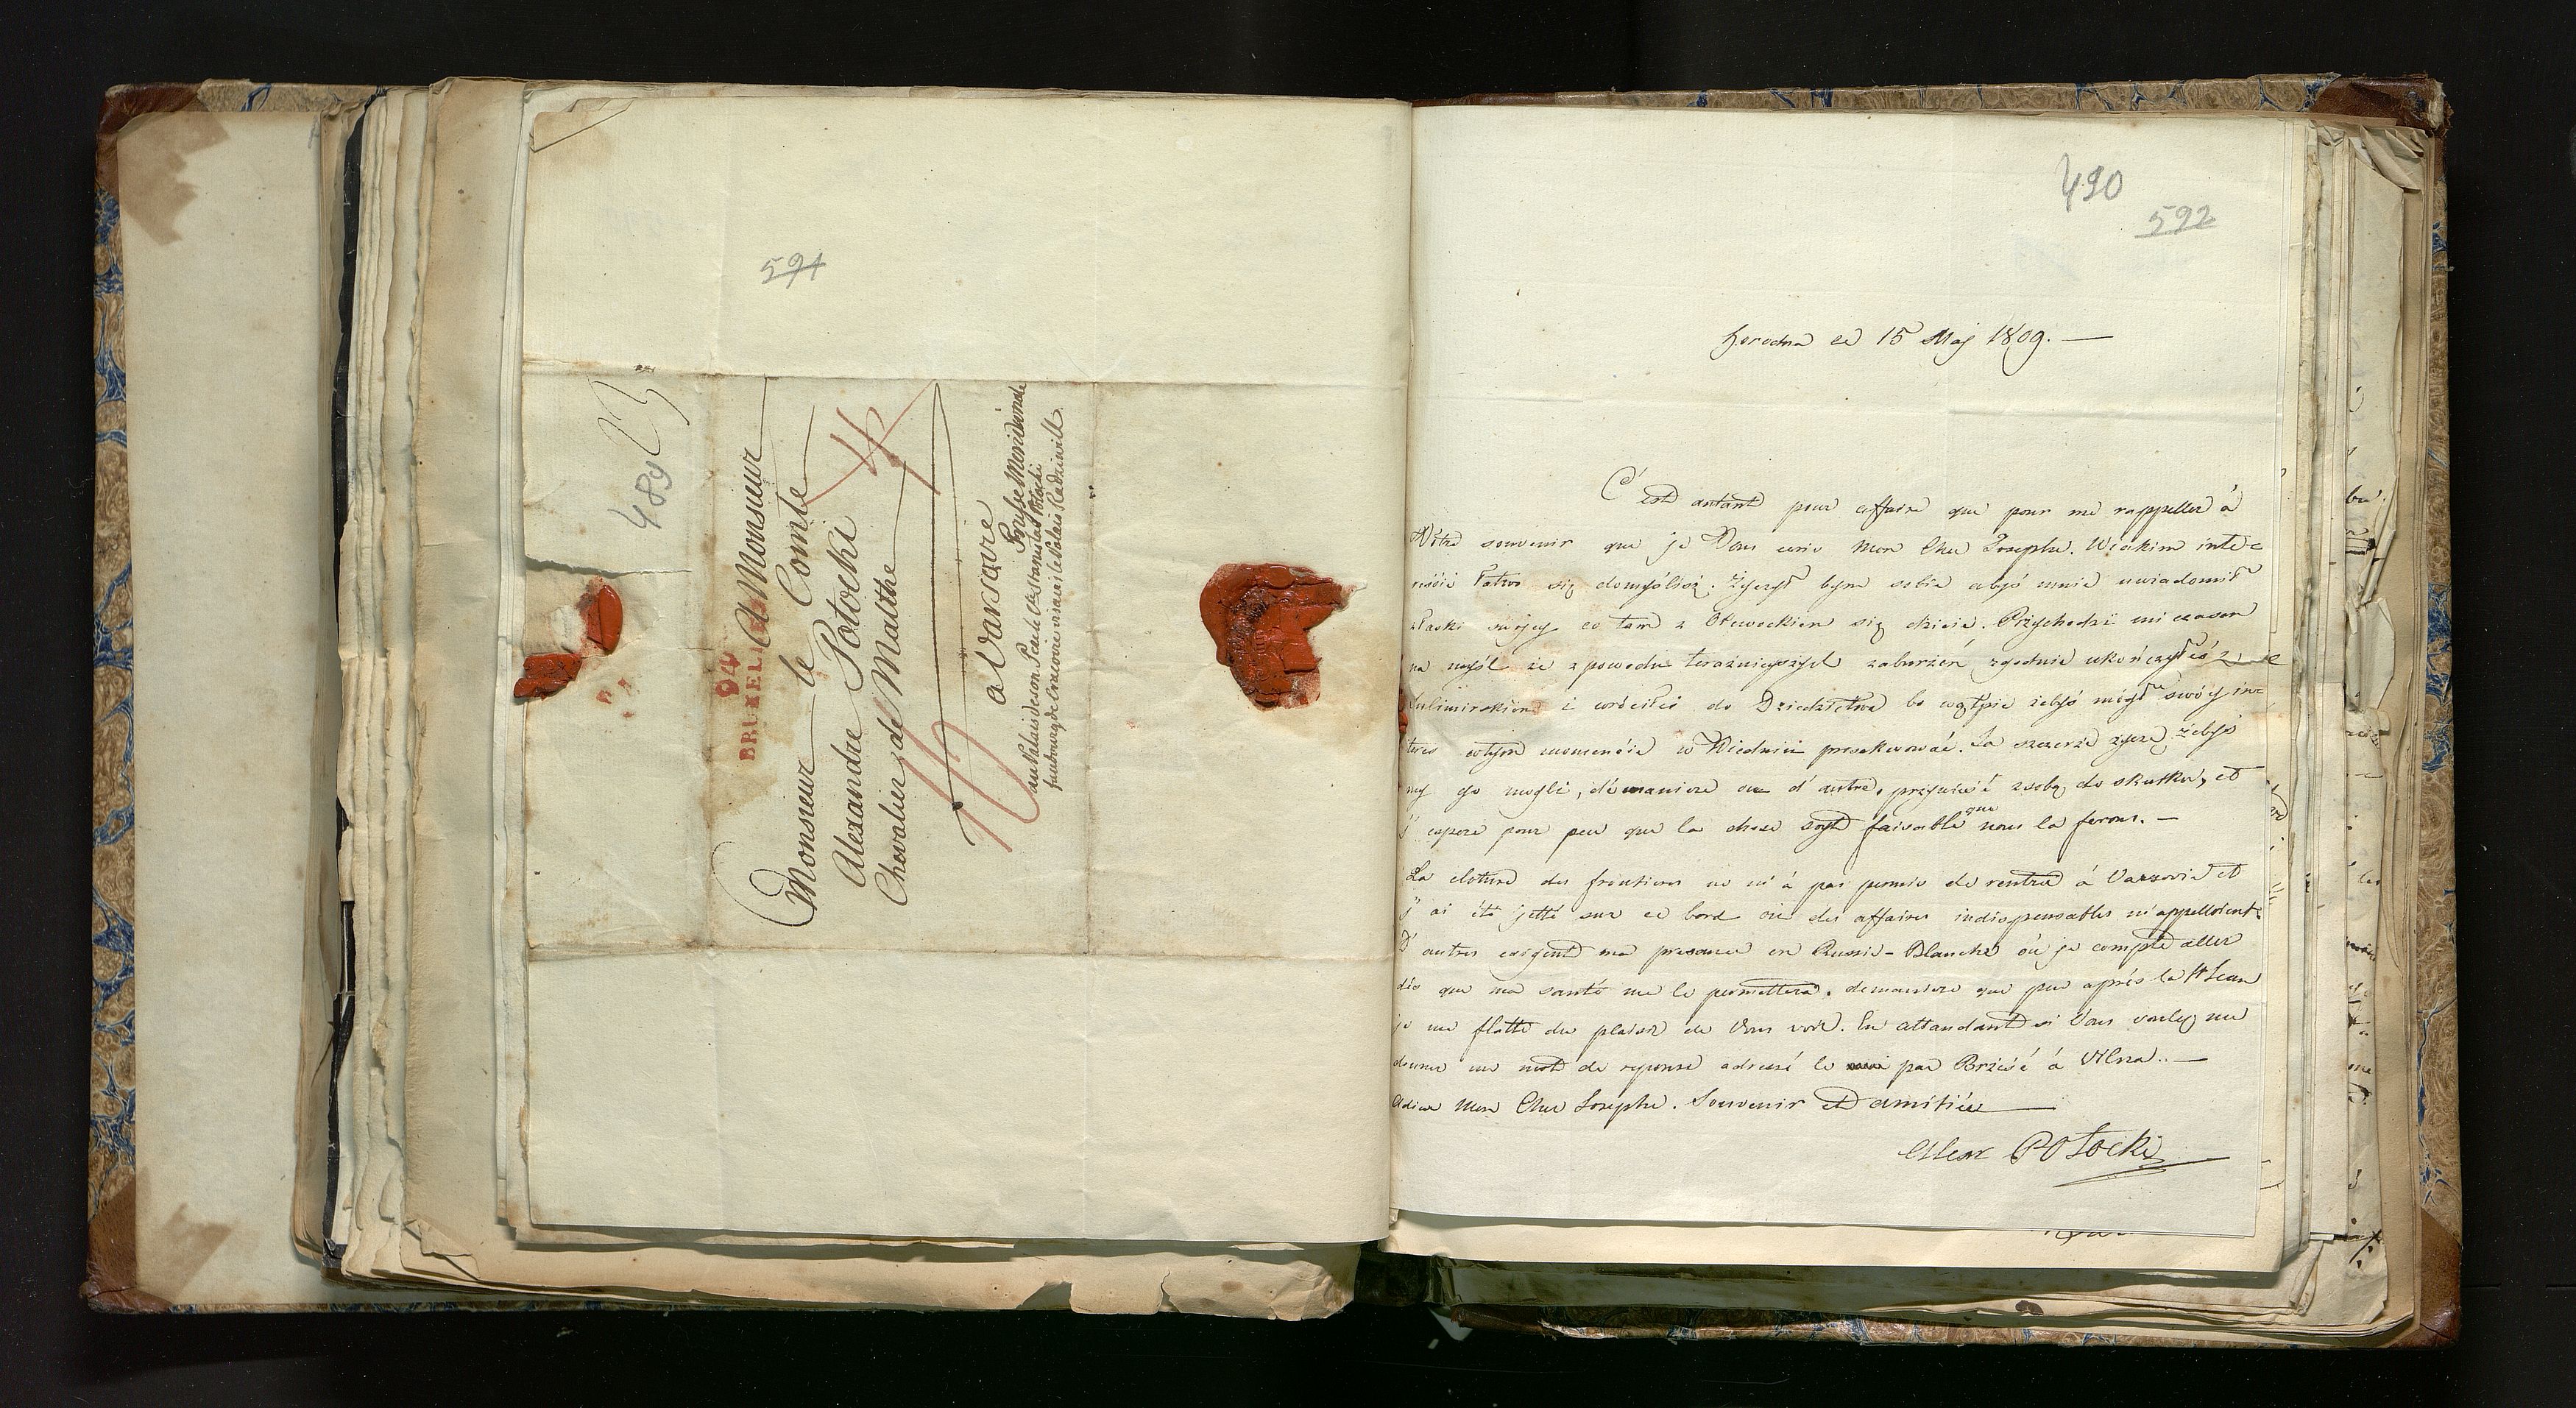 591
489
94
BRUXELLES
A Monsieur
Monsieur le Comte
Alexandre Potocki
Chevalier de Malthe
a Varsovie
Prusse Meridionale
au Palais de son Pere le Cte Stanislas Potocki
fauxbourg de Cracovie vis a vis le Palais Radzivill.
490
592
Horodna ce 15 Maj 1809. —
C'est autant pour affaire que pour me rappeller à
Vôtre souvenir que je Vous ecris Mon Cher Josephe. W iakim inte-
ressie łatwo się domyślisz; życzył bym sobie abyś mnie uwiadomił
z łaski swojey co tam z Olewskiem się dzieie. Przychodzi mi czasem
na myśl że z powodu teraznieyszych zaburzeń zgodnie ukończyłeś z
Lulimirskiem i wróciłeś do Dziedzictwa bo wątpię żebyś mógł swóy in-
teres w tym momencie w Wiedniu prosekwować. Ja szczerze życzę żebyś
my go mogli, d'e maniere ou d'autre, przywieść z sobą do skutku, et
j'espere pour peu que la chose soyt faisable que nous la ferons. —
La cloture des frontieres ne m'à pas permis de rentrer à Varsovie et
j'ai été jetté sur ce bord où des affaires indispensables m'appelloient.
D'autres exigent ma presance en Russie-Blanche où je compte aller
dès que ma santé me le permettera. demaniere que peu après la St Jean
je me flatte du plaisir de Vous voir. En attandant si Vous voulez me
donner un mot de reponse adressé le par Brześć à Vilna. —
Adieu Mon Cher Josephe. Souvenir et amitiée
Alex Potocki